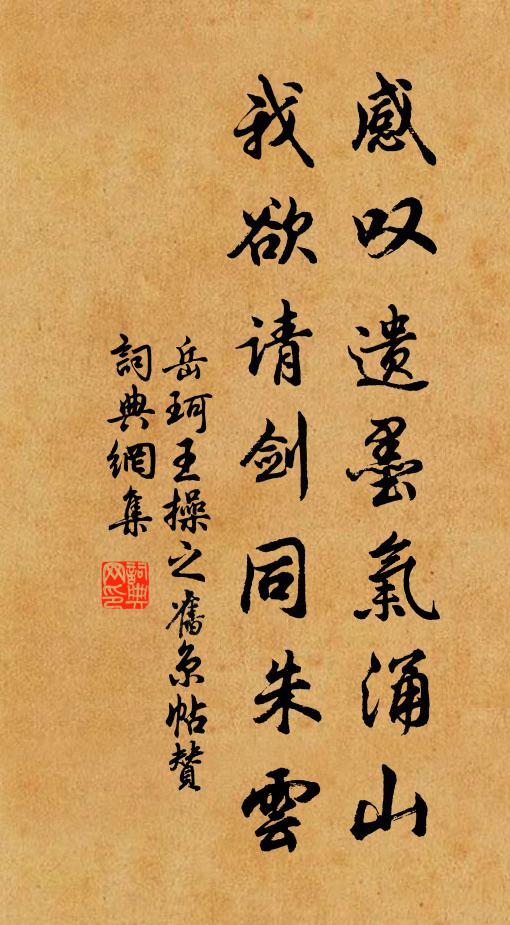 感叹遗墨氣涌山
我欲请剑同朱雲
岳珂王操之舊京帖赞
詞典網集
詞典網印